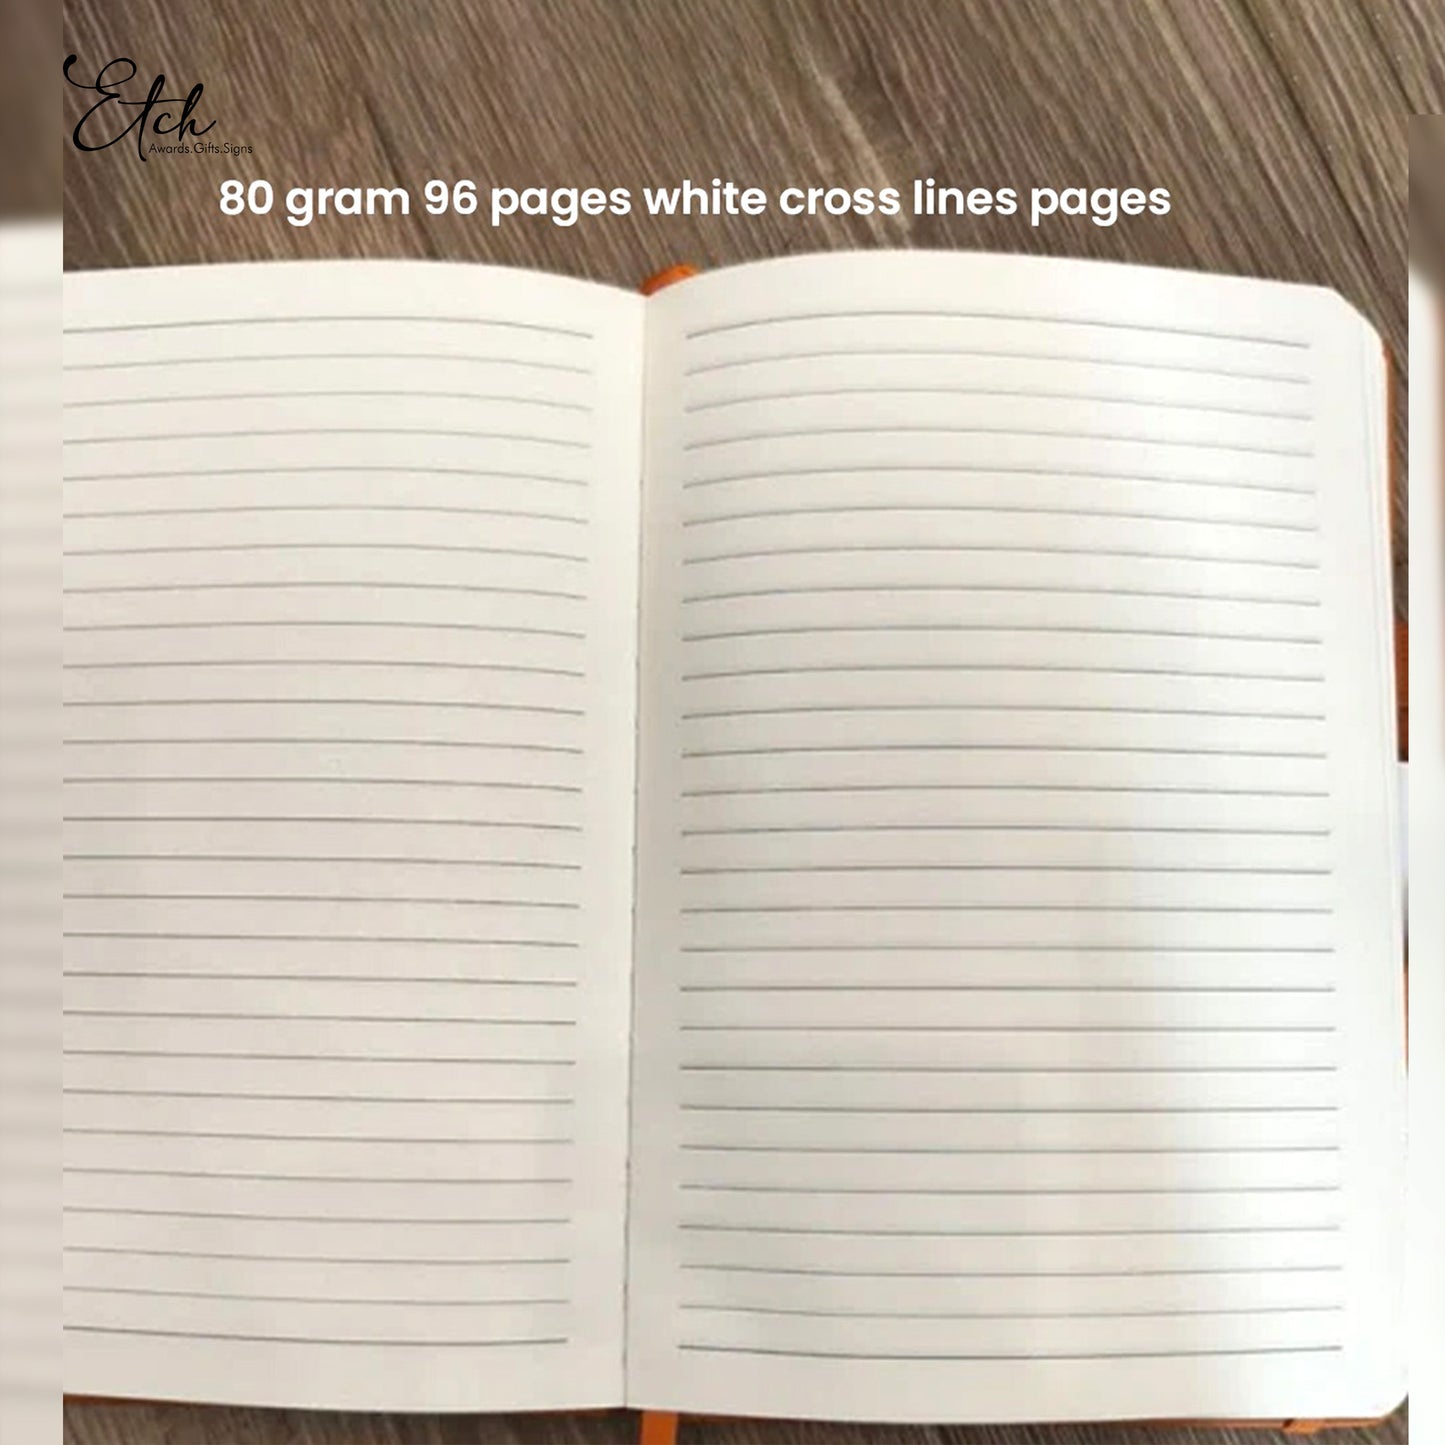 Etch
Awards.Gifts.Signs
80 gram 96 pages white cross lines pages